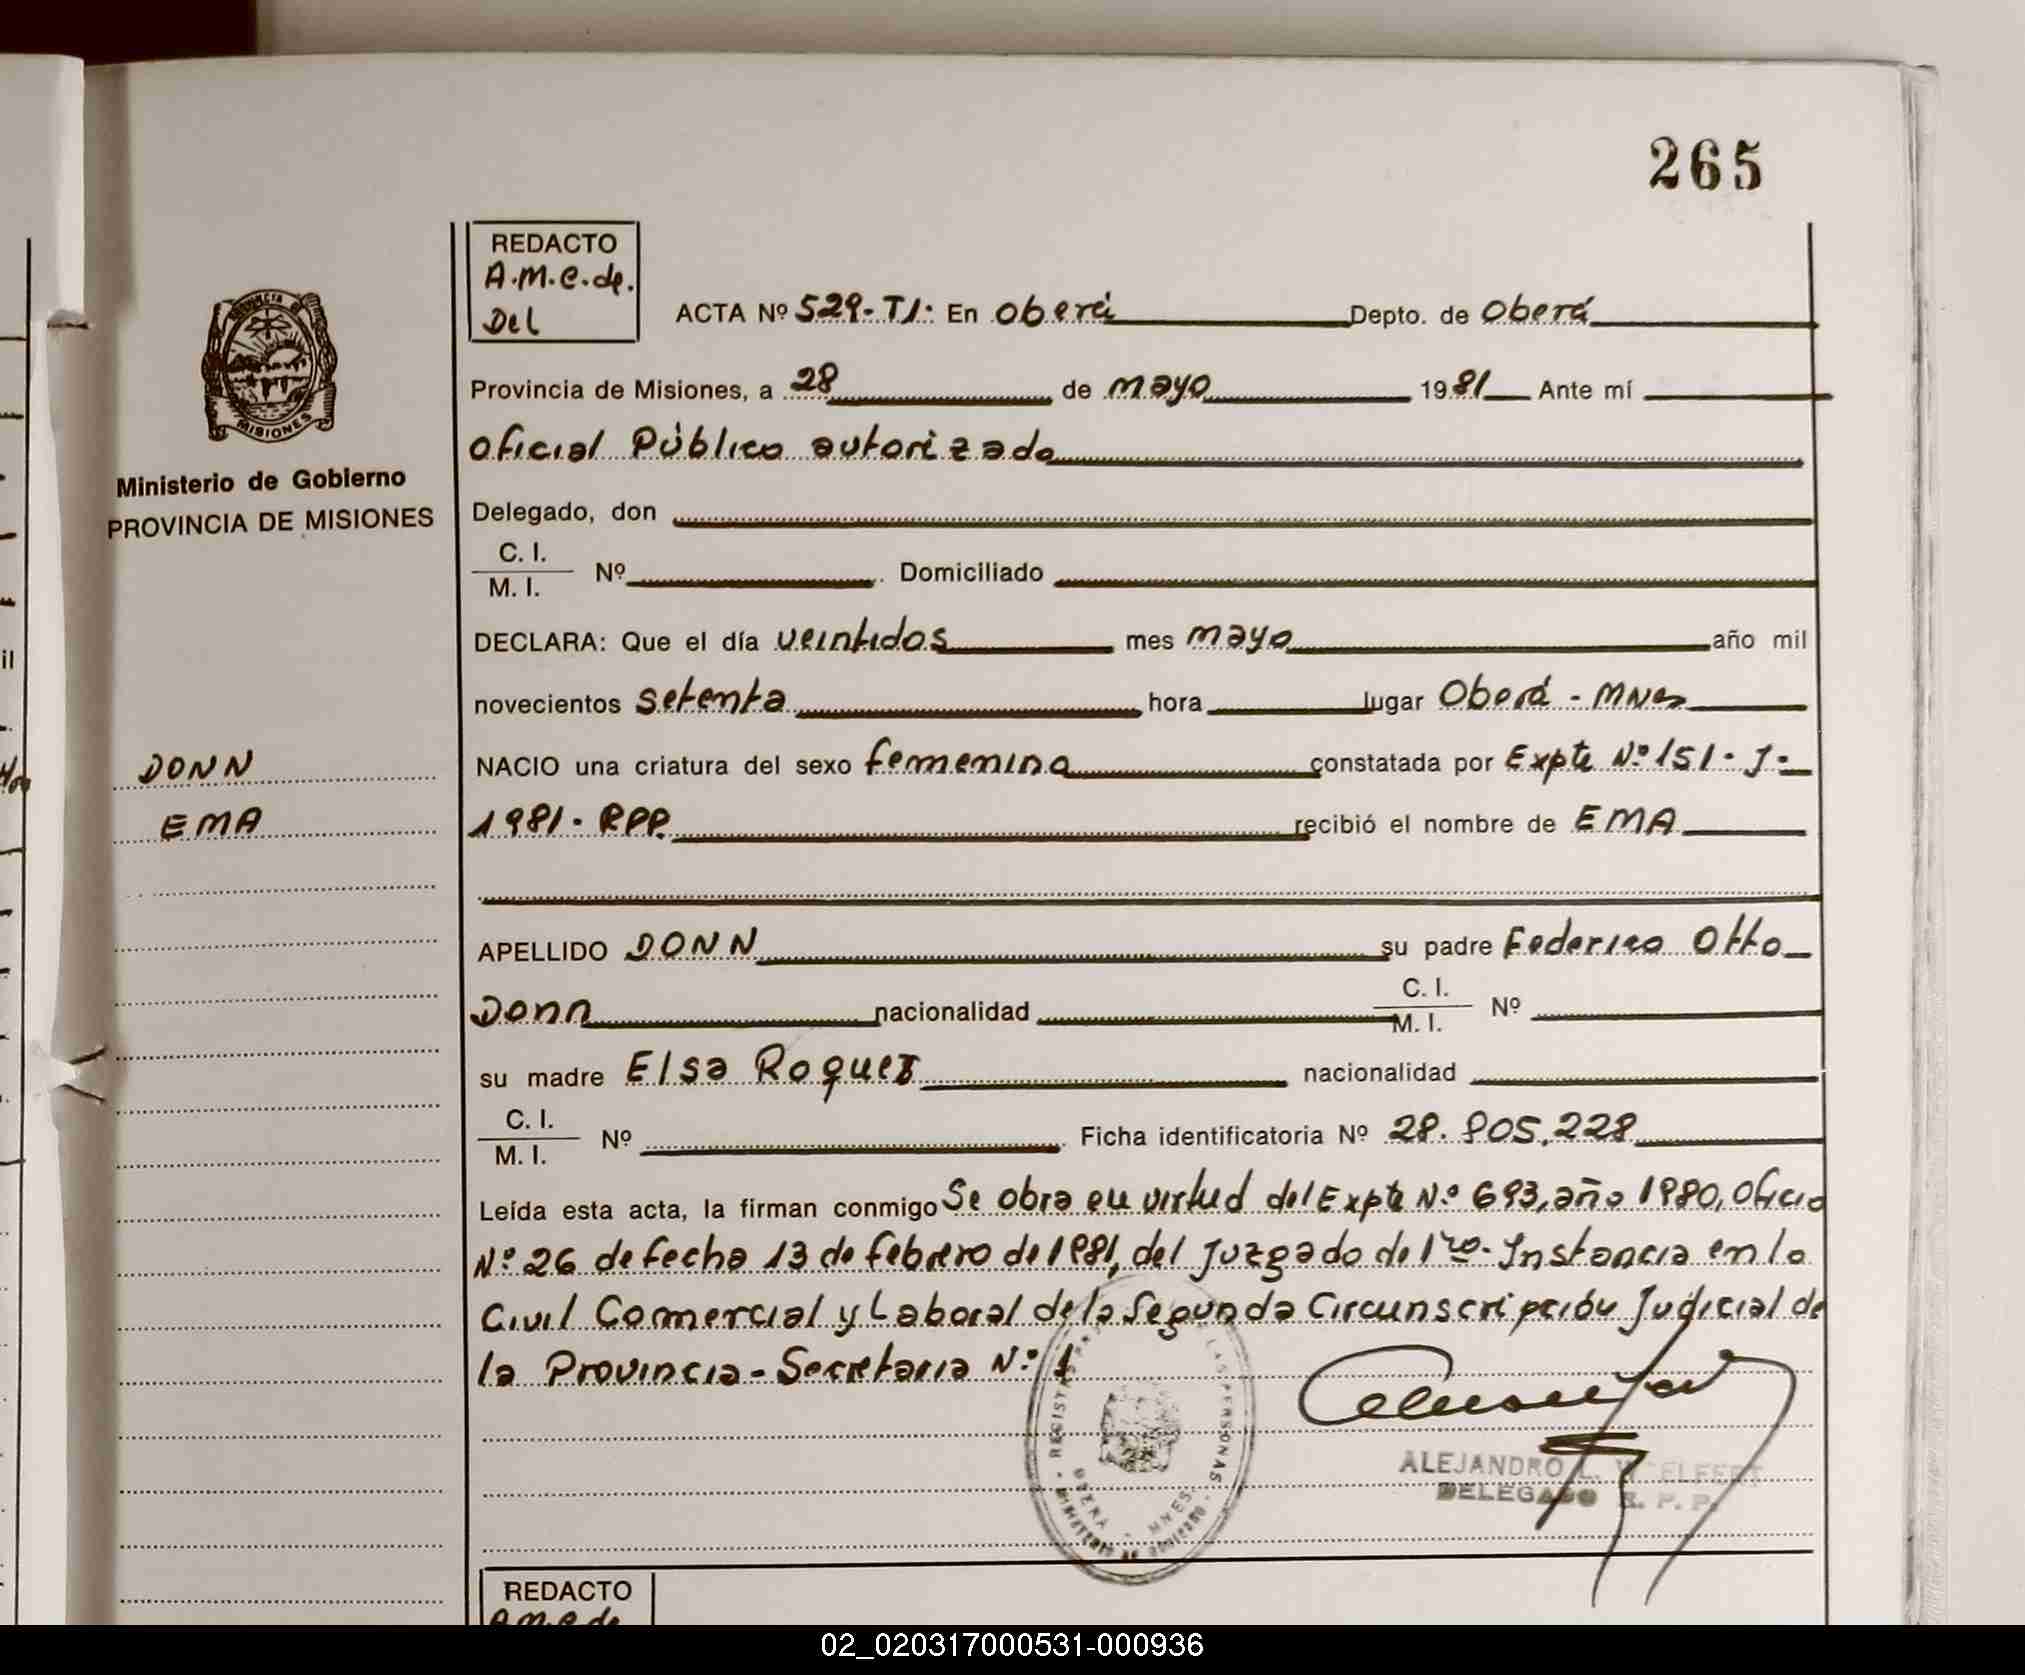 265
REDACTO
A.M.C.de.
Del
ACTA Nº 529-TI. En Oberá Depto. de Oberá
Provincia de Misiones, a 28 de mayo 1981 Ante mí
Oficial Público autorizado
Ministerio de Gobierno
PROVINCIA DE MISIONES
MISIONES
Delegado, don
C. I.
M. I. Nº Domiciliado
DECLARA: Que el día veintidos mes mayo año mil
novecientos setenta hora lugar Oberá - MNes
DONN
NACIO una criatura del sexo femenino constatada por Expte Nº 151 - J -
EMA
1981 - RPP. recibió el nombre de EMA
APELLIDO DONN su padre Federico Otto
Donn nacionalidad C. I.
M. I. Nº
su madre Elsa Roquez nacionalidad
C. I.
M. I. Nº Ficha identificatoria Nº 28.905.228
Leída esta acta, la firman conmigo Se obra en virtud del Expte Nº 693, año 1980, Oficio
Nº 26 de fecha 13 de febrero de 1981, del Juzgado de 1ra. Instancia en lo
Civil Comercial y Laboral de la Segunda Circunscripción Judicial de
la Provincia - Secretaria Nº 1
LAS PERSONAS
OBERA - MNES.
ALEJANDRO L.
DELEGADO R. P. P.
REDACTO
A.M.C.de
il
02_020317000531-000936